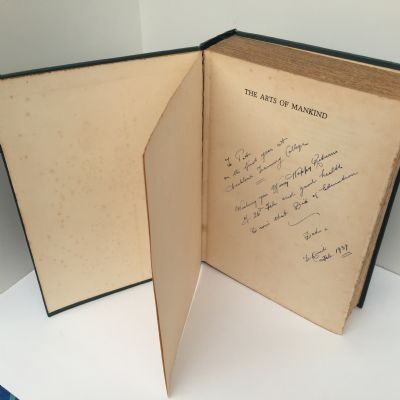 THE ARTS OF MANKIND
To Pete
on the first year at
Training College
Wishing you Many Happy Returns
of 26th Feb and good health
to win that Dip of Education
Feb. 1939